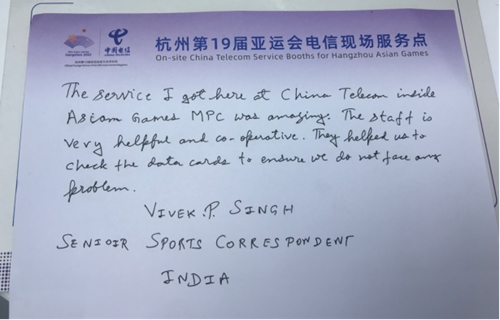 中国电信
杭州第19届亚运会电信现场服务点
On-site China Telecom Service Booths for Hangzhou Asian Games
The service I got here at China Telecom inside
Asian Games MPC was amazing. The staff is
very helpful and co-operative. They helped us to
check the data cards to ensure we do not face any
problem.
VIVEK.P. SINGH
SENIOIR SPORTS CORRESPONDENT
INDIA